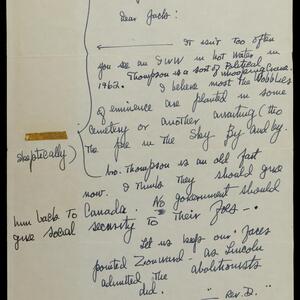 Dear Jack:
It isn't too often
you see an IWW in hot water in
1962. Thompson is a sort of Political
Whooping Crane.
I believe most the Wobblies
of eminence are planted in some
cemetery or another awaiting (tho
skeptically) The pie in the Sky By and by.
Bro. Thompson is an old fart
now. I think They should give
him back to Canada. No government should
give social security to Their foes —.
Let us keep our faces
pointed Zionward — as Lincoln
admitted the abolitionists
did.
— "Rev. D."